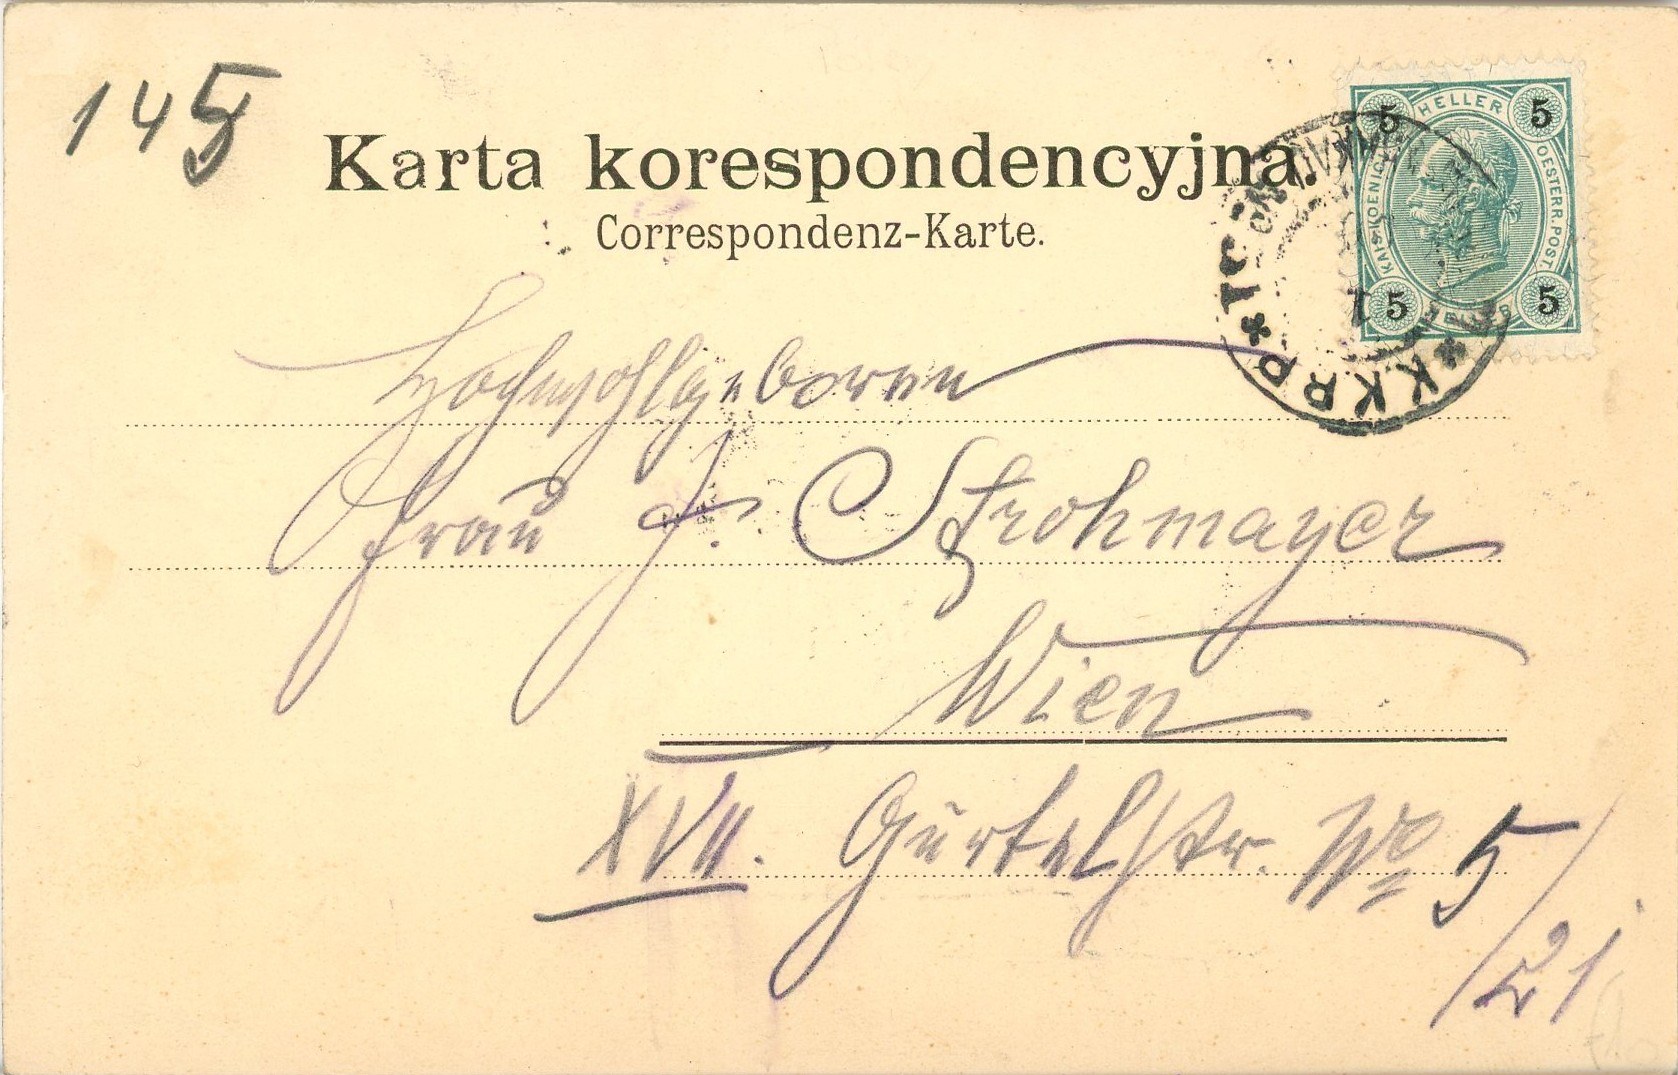 145
Karta korespondencyjna.
Correspondenz-Karte.
5 HELLER 5
KAIS. KOENIGL. OESTERR. POST.
5 HELLER 5
K K P P
Hochwohlgeboren
Frau J. Strohmayer
Wien
XVII. Gürtelstr. No 5/21